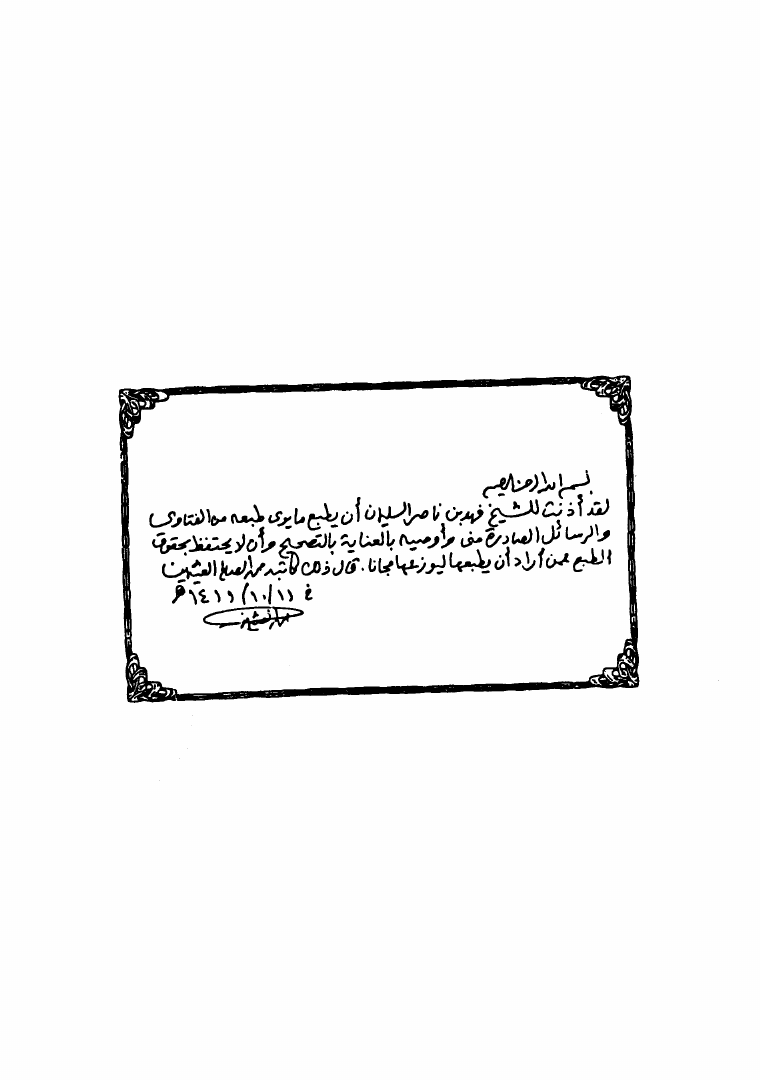 بسم الله الرحمن الرحيم
لقد أذنت للشيخ فهد بن ناصر السليمان أن يطبع ما يرى طبعه من الفتاوى
والرسائل الصادرة مني وأوصيه بالعناية بالتصحيح وأن لا يحتفظ بحقوق
الطبع عمن أراد أن يطبعها ليوزعها مجانا. قال ذلك كاتبه محمد الصالح العثيمين
في ١١/١٠/١٤١١ه‍